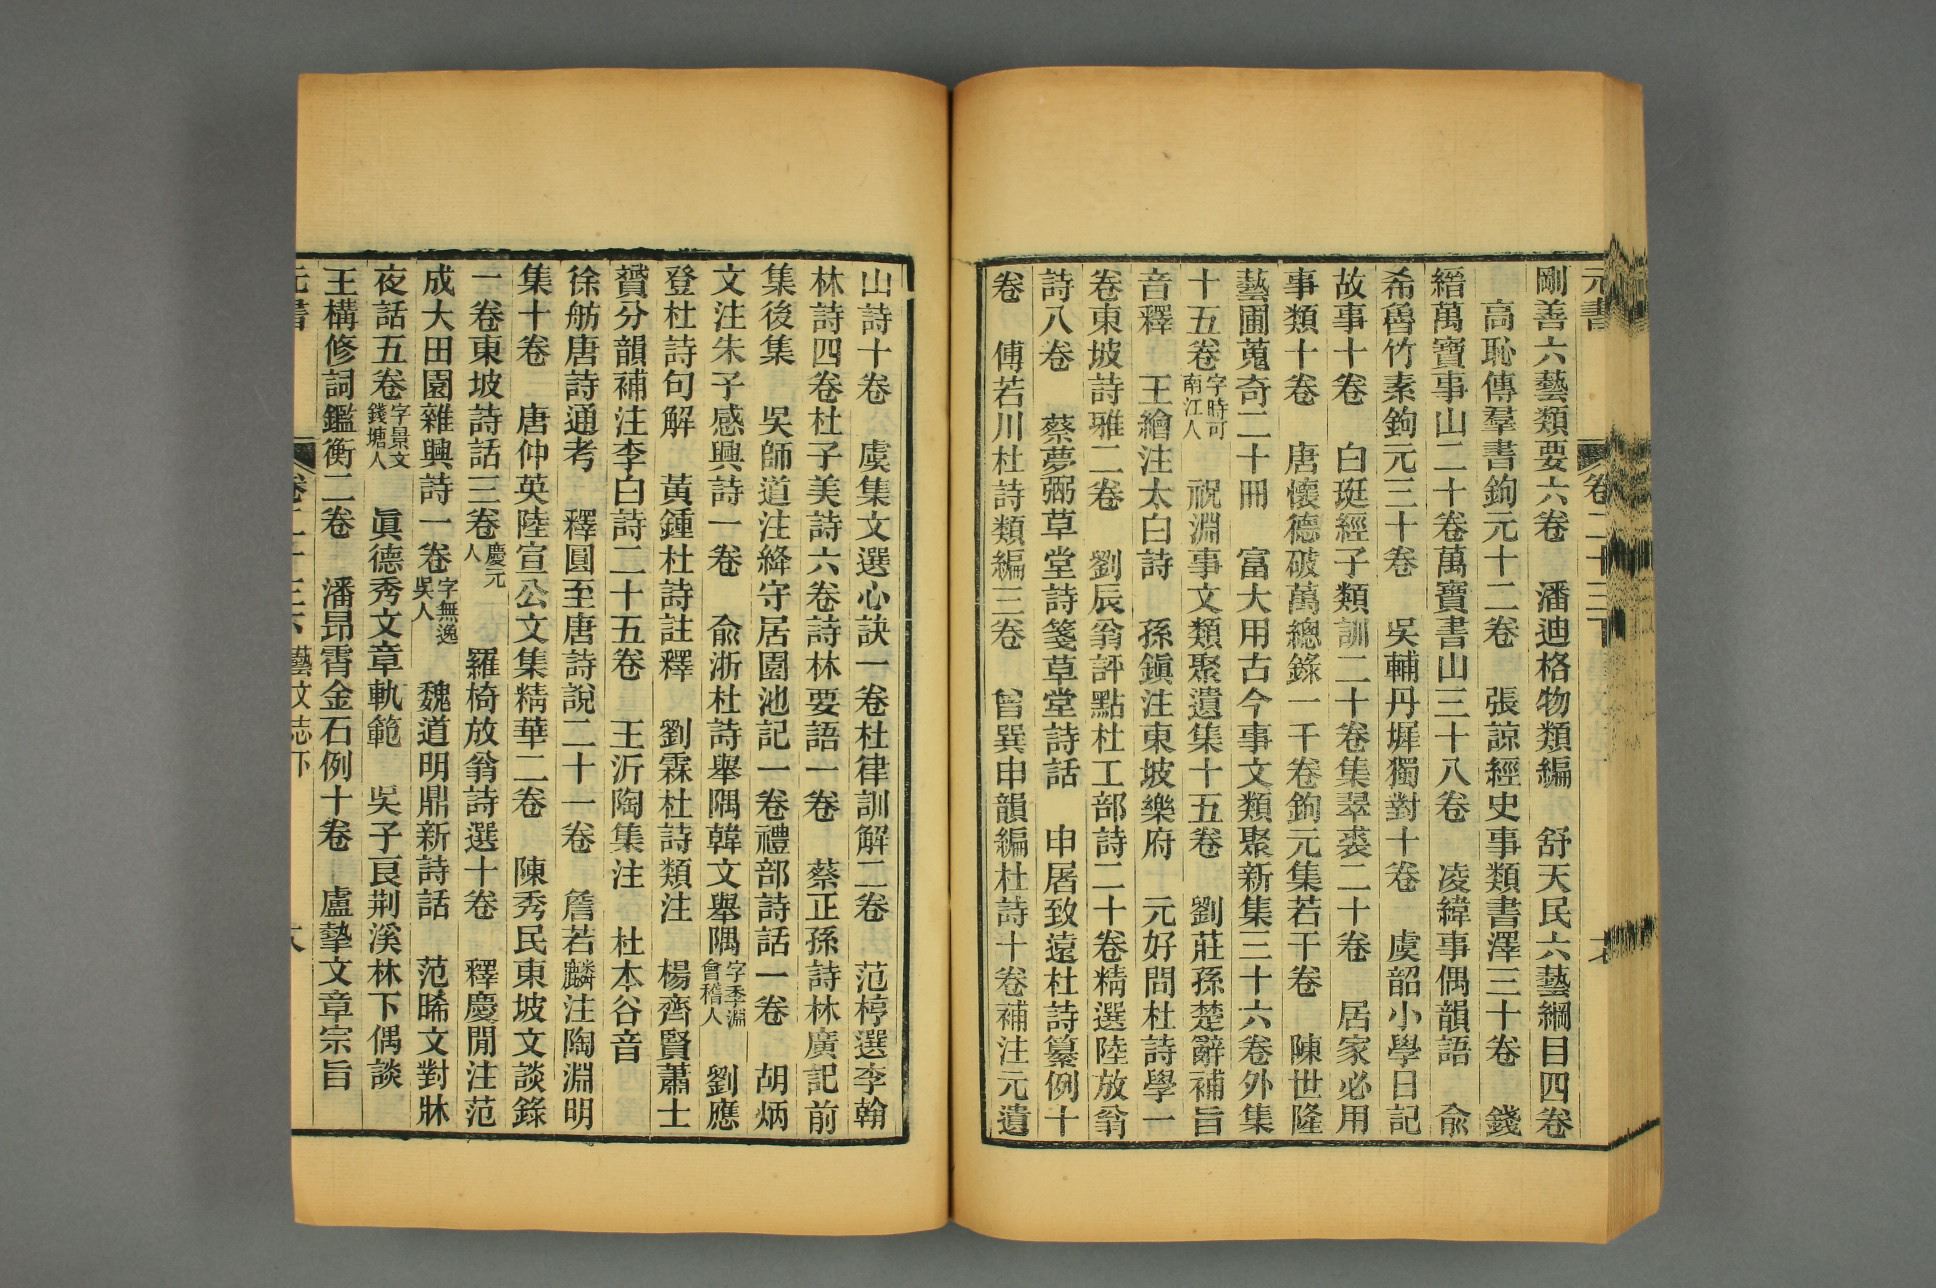 元書 卷二十三下
剛善六藝類要六卷 潘迪格物類編 舒天民六藝綱目四卷
高恥傳羣書鉤元十二卷 張諒經史事類書澤三十卷 錢
縉萬寶事山二十卷萬寶書山三十八卷 凌緯事偶韻語 俞
希魯竹素鉤元三十卷 吳輔丹墀獨對十卷 虞韶小學日記
故事十卷 白珽經子類訓二十卷集翠裘二十卷 居家必用
事類十卷 唐懷德破萬總錄一千卷鉤元集若干卷 陳世隆
藝圃蒐奇二十冊 富大用古今事文類聚新集三十六卷外集
十五卷字時可南江人 祝淵事文類聚遺集十五卷 劉莊孫楚辭補旨
音釋 王繪注太白詩 孫鎭注東坡樂府 元好問杜詩學一
卷東坡詩雅二卷 劉辰翁評點杜工部詩二十卷精選陸放翁
詩八卷 蔡夢弼草堂詩箋草堂詩話 申屠致遠杜詩纂例十
卷 傅若川杜詩類編三卷 曾巽申韻編杜詩十卷補注元遺
山詩十卷 虞集文選心訣一卷杜律訓解二卷 范梈選李翰
林詩四卷杜子美詩六卷詩林要語一卷 蔡正孫詩林廣記前
集後集 吳師道注絳守居園池記一卷禮部詩話一卷 胡炳
文注朱子感興詩一卷 俞浙杜詩舉隅韓文舉隅字季淵會稽人 劉應
登杜詩句解 黃鍾杜詩註釋 劉霖杜詩類注 楊齊賢蕭士
贇分韻補注李白詩二十五卷 王沂陶集注 杜本谷音
徐舫唐詩通考 釋圓至唐詩說二十一卷 詹若麟注陶淵明
集十卷 唐仲英陸宣公文集精華二卷 陳秀民東坡文談錄
一卷東坡詩話三卷慶元人 羅椅放翁詩選十卷 釋慶閒注范
成大田園雜興詩一卷字無逸吳人 魏道明鼎新詩話 范晞文對牀
夜話五卷字景文錢塘人 眞德秀文章軌範 吳子良荆溪林下偶談
王構修詞鑑衡二卷 潘昂霄金石例十卷 盧摯文章宗旨
元書 卷二十三下 藝文志下